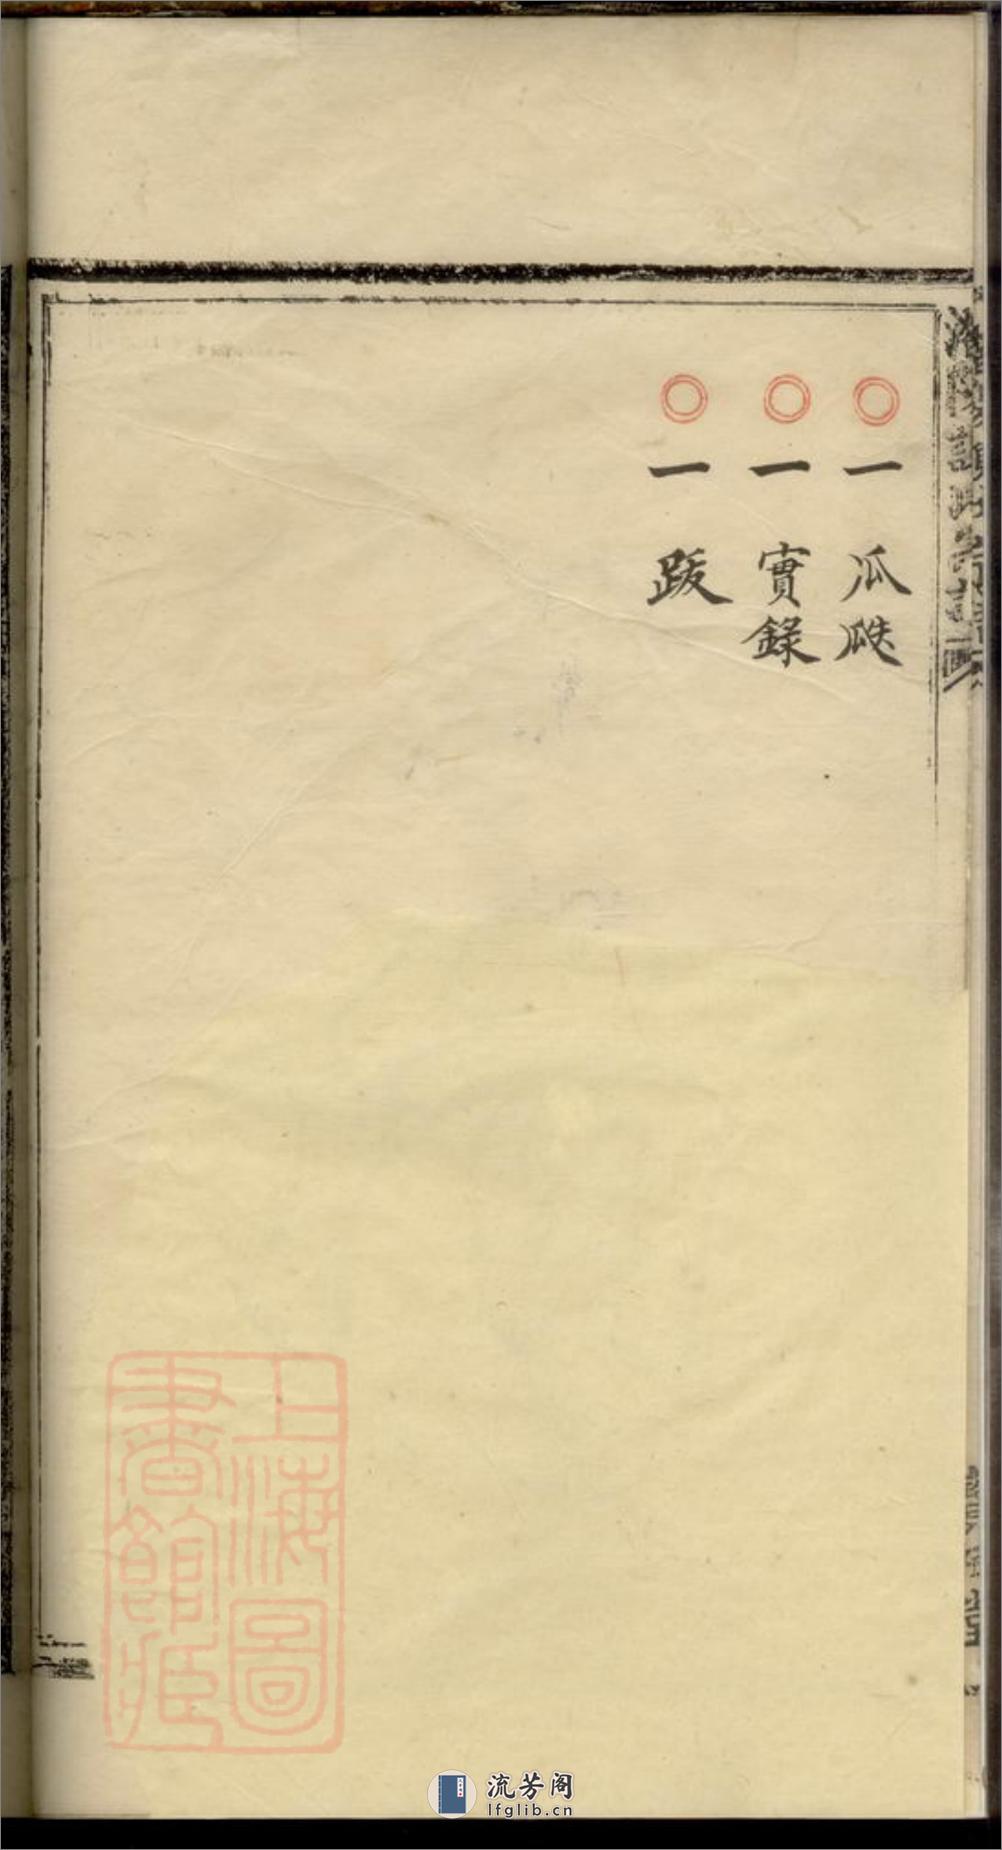 一 瓜瓞
一 實錄
一 跋
上海圖
書館藏
流芳阁
lfglib.cn